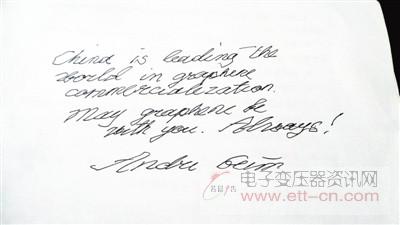 China is leading the
world in graphene
commercialization.
May graphene be
with you. Always!
Andre Geim
电子变压器资讯网
www.ett-cn.com